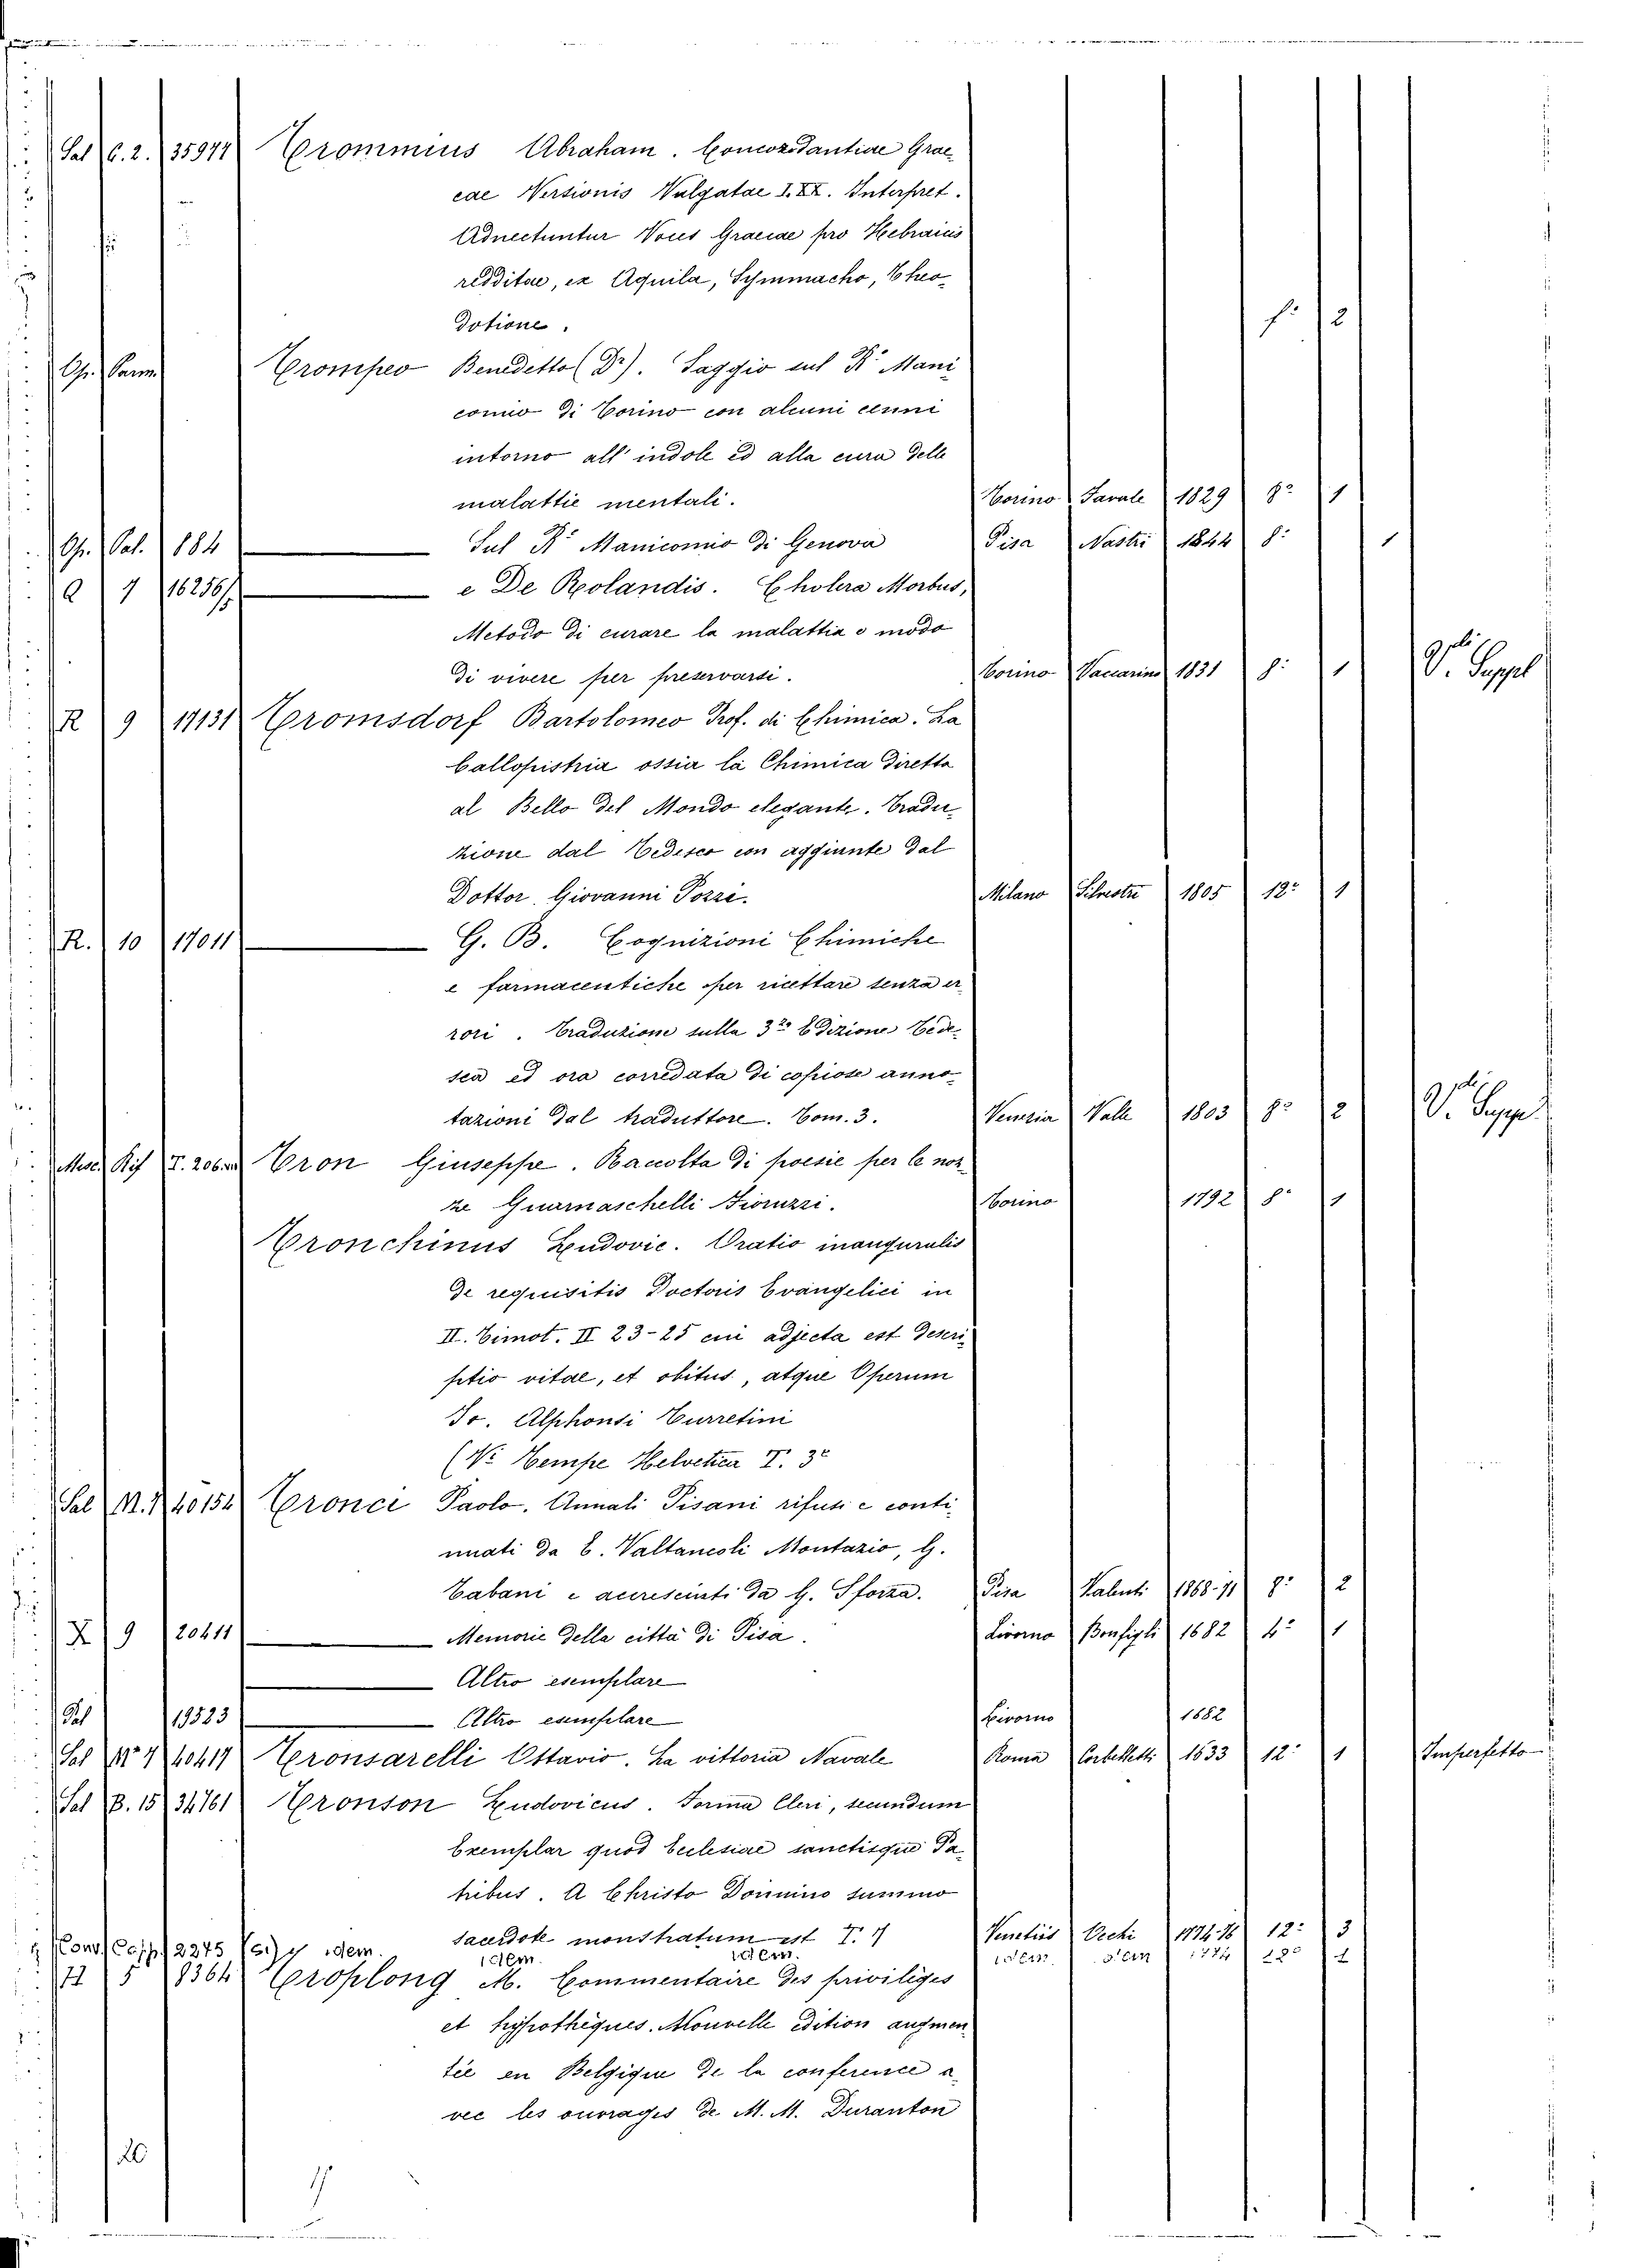 Sal C. 2. 35977 Trommius Abraham. Concordantiae Grae-
cae Versionis Vulgatae LXX. Interpret.
Adnectuntur Voces Graecae pro Hebraicis
redditae, ex Aquila, Symmacho, Theo-
dotione. f: 2
Op. Parm Trompeo Benedetto (Dr). Saggio sul Ro Mani
comio di Torino con alcuni cenni
intorno all' indole ed alla cura delle
malattie mentali. Torino Favale 1829 8o 1
Op. Pal. 184 Sul Ro Manicomio di Genova Pisa Nastri 1844 8: 1
Q 7 16256/ e De Rolandis. Cholera Morbus,
Metodo di curare la malattia e modo
di vivere per preservarsi. Torino Vaccarino 1831 8: 1 V. Suppl
R 9 17131 Tromsdorf Bartolomeo Prof. di Chimica. La
Callopistria ossia la Chimica diretta
al Bello del Mondo elegante. Tradu-
zione dal Tedesco con aggiunte dal
Dottor. Giovanni Pozzi. Milano Silvestri 1805 12: 1
R. 10 17011 G. B. Cognizioni Chimiche
e farmaceutiche per ricettare senza er-
rori. Traduzione sulla 3a Edizione Tede-
sca ed ora corredata di copiose anno-
tazioni dal traduttore. Tom. 3. Venezia Valle 1803 8o 2 V. Supp
Misc. Rif T. 206 Tron Giuseppe. Raccolta di poesie per le noz-
ze Guarnaschelli Fioruzzi. Torino 1792 8o 1
Tronchinus Ludovic. Oratio inauguralis
de requisitis Doctoris Evangelici in
II. Timot. II 23-25 cui adjecta est descri-
ptio vitae, et obitus, atque Operum
Jo. Alphonsi Turretini
(V: Tempe Helvetica T. 3o
Sal M. 7 40154 Tronci Paolo. Annali Pisani rifusi e conti-
nuati da E. Valtancoli Montazio, G.
Tabani e accresciuti da G. Sforza. Pisa Valenti 1868-71 8: 2
X 9 20411 Memorie della città di Pisa. Livorno Bonfigli 1682 4: 1
Altro esemplare
Pal 19523 Altro esemplare Livorno 1682
Sal No 7 40417 Tronsarelli Ottavio. La vittoria Navale Roma Corbelletti 1633 12: 1 Imperfetto
Sal B. 15 34761 Tronson Ludovicus. Forma Cleri, secundum
Exemplar quod Ecclesiae sanctisque Pa-
tribus. A Christo Domino summo
sacerdote monstratum est T. 1 Venetiis Occhi 1774-76 12: 3
Conv. Capp. 2245 idem. idem. idem. idem. idem 1774 12o 1
H 5 8364 Troplong M. Commentaire des priviliges
et hypothèques. Mouvelle edition augmen-
tée en Belgique de la conference a-
vec les ouvrages de M. M. Duranton
20